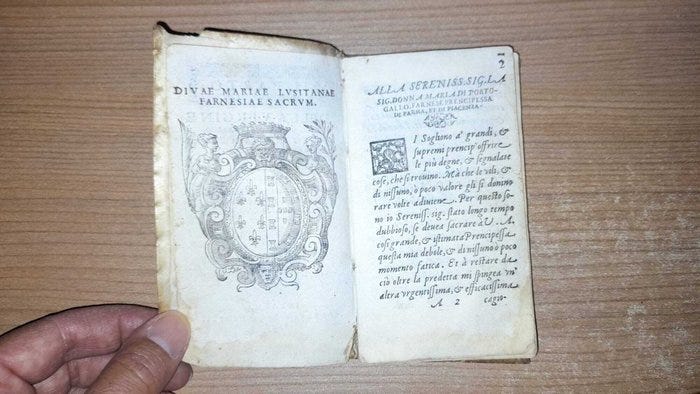 DIVAE MARIAE LVSITANAE
FARNESIAE SACRVM.
2
ALLA SERENISS. SIG. LA
SIG. DONNA MARIA DI PORTO-
GALLO, FARNESE PRENCIPESSA
DI PARMA, ET DI PIACENZA.
SI Sogliono a' grandi, &
supremi prencip' offrire
le più degne, & segnalate
cose, che si trovino. Mà che le vili, &
di nissuno, ò poco valore gli si donino
rare volte adiviene. Per questo so-
no io Sereniss. sig. stato longo tempo
dubbioso, se devea sacrare à V. A.
cosi grande, & istimata Prencipessa
questa mia debole, & di nissuno ò poco
momento fatica. Et à restare da
ciò oltre la predetta mi spingea un'
altra urgentissima, & efficacissima
A 2 cagio